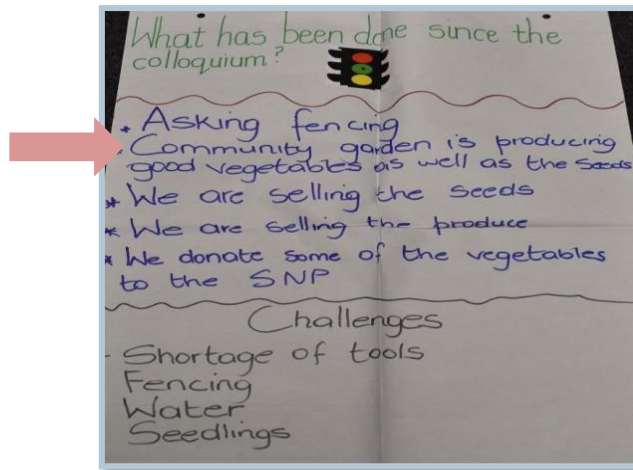 What has been done since the
colloquium?
* Asking fencing
* Community garden is producing
good vegetables as well as the seeds
* We are selling the seeds
* We are selling the produce
* We donate some of the vegetables
to the SNP
Challenges
- Shortage of tools
Fencing
Water
Seedlings